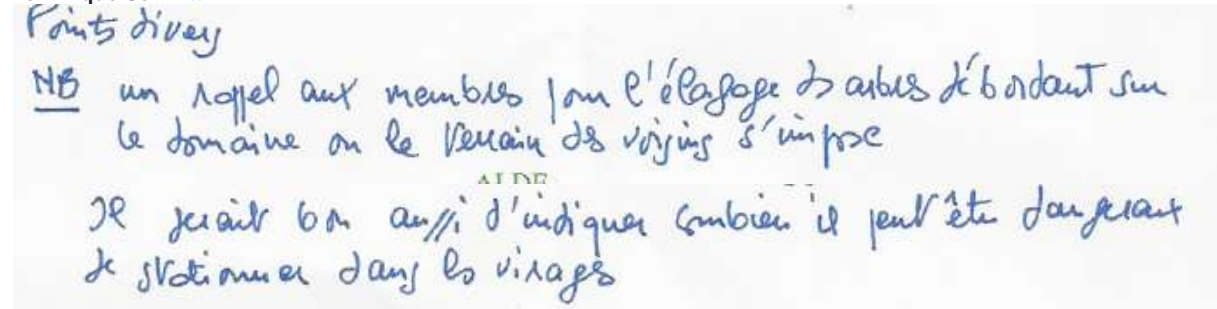 Points divers
NB un rappel aux membres pour l'élagage des arbres débordant sur
le domaine ou le terrain des voisins s'impose
ALDE
Il serait bon aussi d'indiquer combien il peut être dangereux
de stationner dans les virages